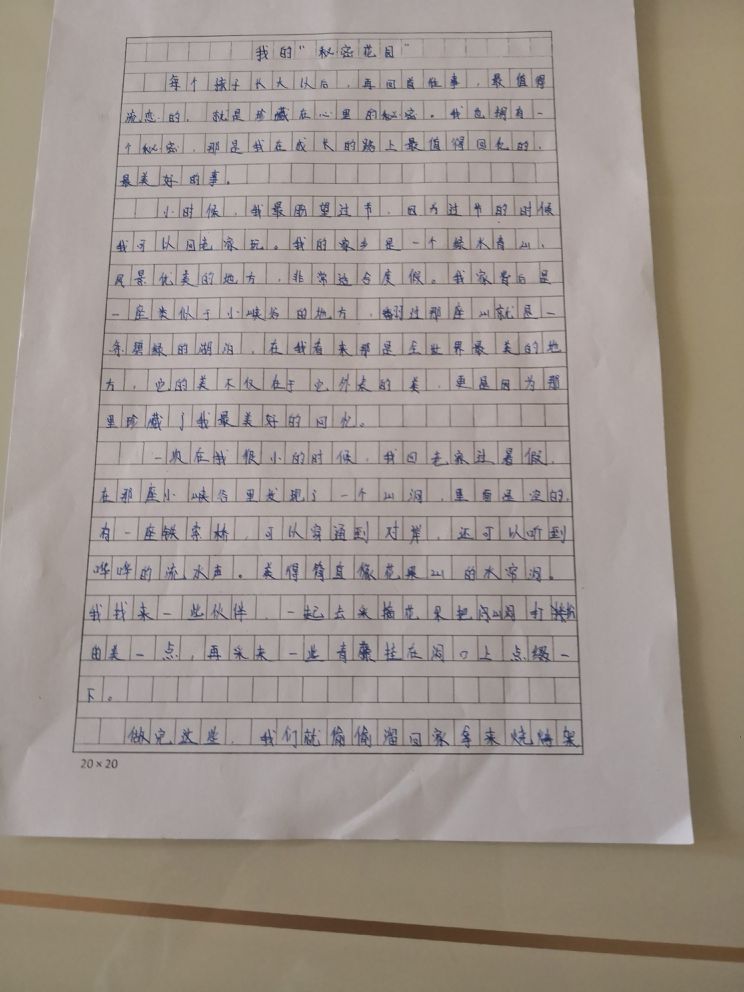 我的“秘密花园”
每个孩子长大以后，再回首往事，最值得
流恋的，就是珍藏在心里的秘密。我也拥有一
个秘密，那是我在成长的路上最值得回忆的，
最美好的事。
小时候，我最盼望过节，因为过节的时候
我可以回老家玩。我的家乡是一个绿水青山、
风景优美的地方，非常适合度假。我家背后是
一座类似于小峡谷的地方，过那座山就是一
条碧绿的湖泊，在我看来那是全世界最美的地
方，它的美不仅在于它外表的美，更是因为那
里珍藏了我最美好的回忆。
一次在我很小的时候，我回老家过暑假，
在那座小峡谷里发现了一个山洞，里面是空的，
有一座铁索桥，可以穿通到对岸，还可以听到
哗哗的流水声。美得简直像花果山的水帘洞。
我找来一些伙伴，一起去采摘花果把山洞打扮
由美一点，再采来一些青藤挂在洞口上点缀一
下。
做完这些，我们就偷偷溜回家拿来烧烤架
20×20